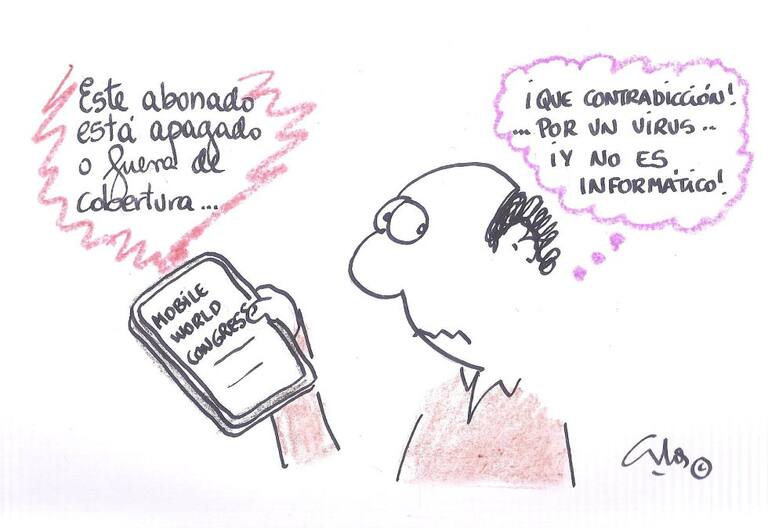 Este abonado
está apagado
o fuera de
cobertura...
¡QUE CONTRADICCIÓN!
... POR UN VIRUS..
¡Y NO ES
INFORMÁTICO!
MOBILE
WORLD
CONGRESS